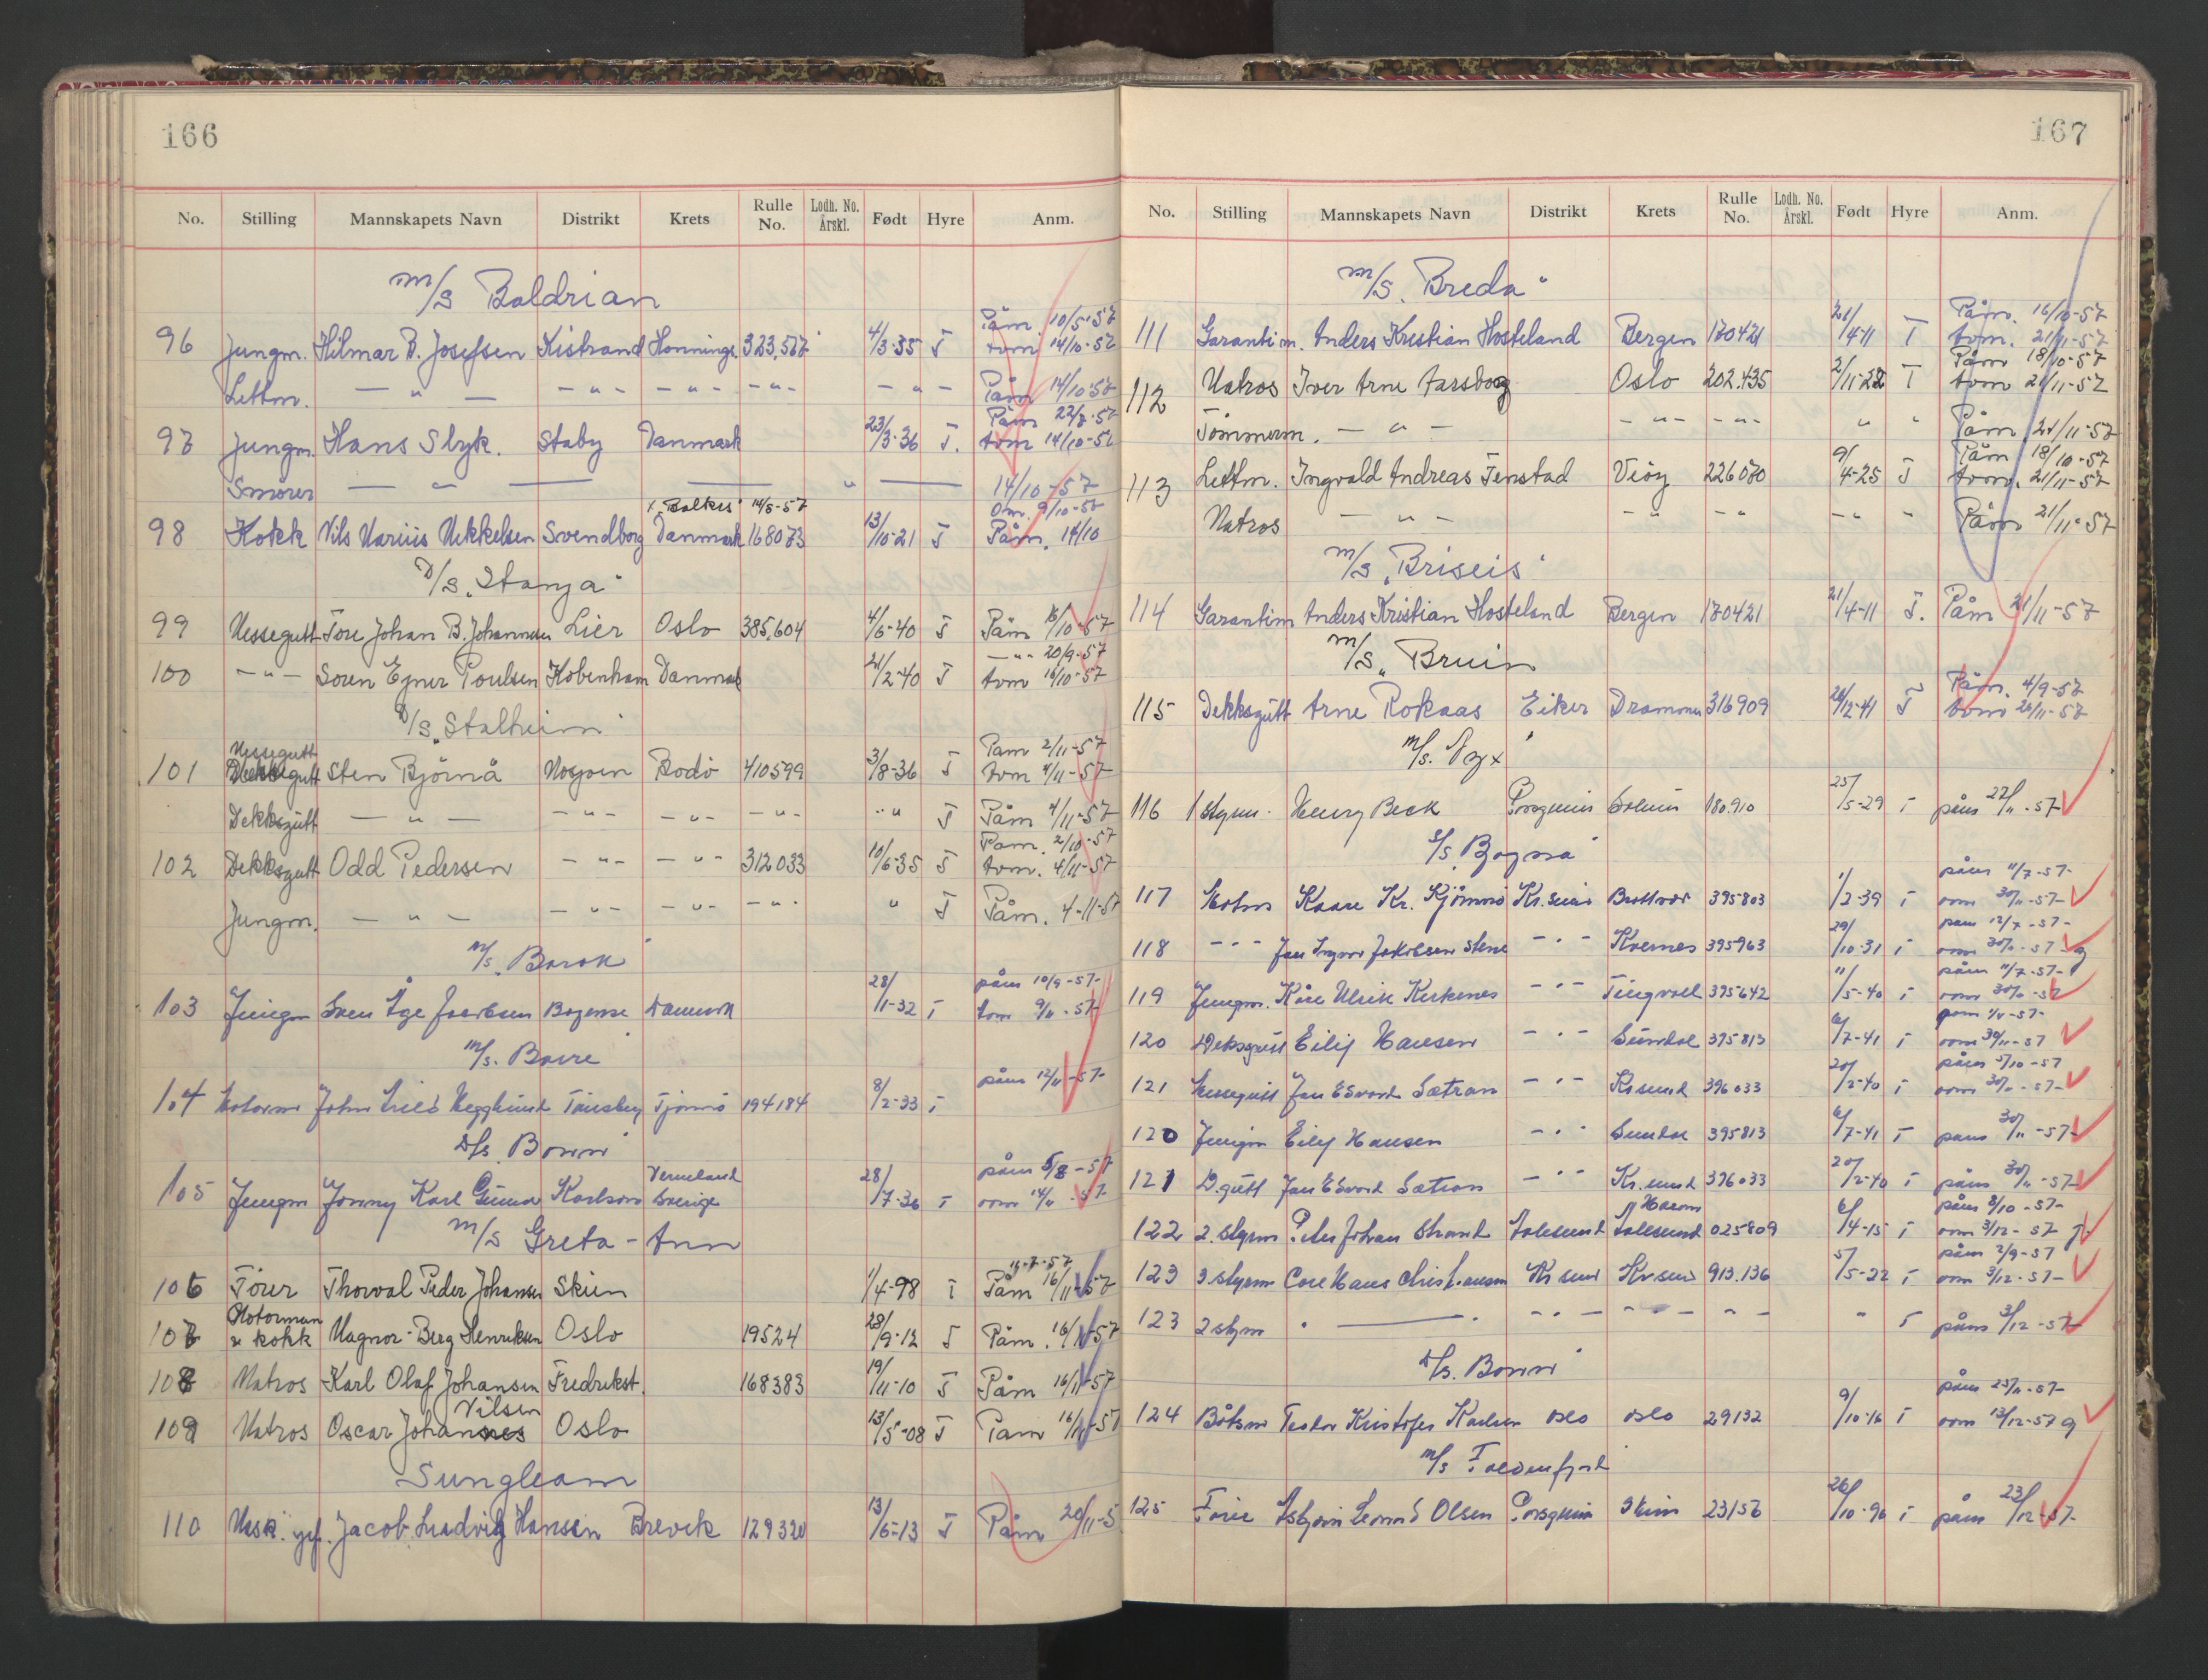 166
No. Stilling Mannskapets Navn Distrikt Krets Rulle No. Lodh. No. Årskl. Født Hyre Anm.
m/s Baldrian
Påm. 10/5-57
96 Jungm. Hilmar B. Josefsen Kistrand Honnings. 323,567 4/3-35 T avm 14/10-57
Lettm. — " — - " - - " - - " - - " - Påm 14/10-57
Påm 22/7-57
97 Jungm. Hans Slyk. Staby Danmark 23/3-36 T. avm 14/10-57
Smører — " — 14/10-57
x "Balkis" 14/8-57 Om. 9/10-57
98 Kokk Nils Marius Mikkelsen Svendborg Danmark 168073 13/10-21 T Påm. 14/10
D/S "Stanja"
99 Messegutt Tore Johan B. Johannesen Lier Oslo 385,604 4/6-40 T Påm 16/10-57
- " - 20/9-57
100 - " - Soren Egner Poulsen Kobenhavn Danmark 21/2-40 T avm 16/10-57
D/S "Stalheim"
Messegutt Påm 2/11-57
101 Dekksgutt Sten Bjørnå Mosjøen Bodø 410599 3/8-36 T avm 4/11-57
Dekksgutt — " — - " - - " - - " - " T Påm 4/11-57
Påm. 2/10-57
102 Dekksgutt Odd Pedersen - " - - " - 312033 10/6-35 T avm. 4/11-57
Jungm. — " — - " - - " - - " - " T Påm. 4-11-57
m/s "Borok"
påm 10/9-57
103 Jungm Sven Åge Jacobsen Bogense Danmark 28/1-32 T 9/11-57
m/s. Borre
påm 12/11-57
104 Motorm John Tønsberg Tjømø 194184 8/2-33 T
D/s. Bonn
Vermland påm 5/8-57
105 Jungm Jonny Karl Gunnar Karlsson Sverige 28/7-36 T avm 14/11-57
m/s Greta-Ann
11-7-57
106 Fører Thorval Peder Johansen Skien 1/4-98 T Påm 16/11-57
Motorman
107 & kokk Magnor Berg Henriksen Oslo 19524 28/9-12 T Påm. 16/11-57
108 Matros Karl Olaf Johansen Fredrikst. 168383 19/11-10 T Påm 16/11-57
Nilsen
109 Matros Oscar Johannes Oslo 13/5-08 T Påm 16/11-57
Sungleam
110 Mask. Jacob Ludvig Hansen Brevik 129320 13/6-13 T Påm 20/11-5
167
No. Stilling Mannskapets Navn Distrikt Krets Rulle No. Lodh. No. Årskl. Født Hyre Anm.
m/s. "Breda"
Påm. 16/10-57
111 Garantim. Anders Kristian Hosteland Bergen 170421 21/4-11 T avm. 21/11-57
Påm 18/10-57
112 Matros Iver Arne Aarsbog Oslo 202.435 2/11-22 T avm 21/11-57
Tømmerm. - " - - " - - " - " " Påm 21/11-57
Påm 18/10-57
113 Lettm. Ingvald Andreas Tenstad Veøy 226070 9/4-25 T avm. 21/11-57
Matros - " - - " - " - " " Påm 21/11-57
m/s "Briseis"
114 Garantim Anders Kristian Hosteland Bergen 170421 21/4-11 T. Påm 21/11-57
m/s. "Bruin
Påm. 4/9-57
115 Dekksgutt Arne Rokaas Eiker Drammen 316909 26/12-41 T avm 26/11-57
m/s. Nyx
116 1 styrm. Henry Beck Porsgrunn Solum 180.910 25/5-29 T påm 22/11-57
S/s. "Bogna"
påm 11/7-57
117 Motm Kaare Kr. Kr.sund Brattvær 395803 1/2-39 T avm 30/11-57
påm 12/7-57
118 - " - Jan Ingvar Jakobsen Stene - " - Kvernes 395963 29/10-31 T avm 30/11-57
påm 11/7-57
119 Jungm. Kåre Ulrik Kirkenes - " - Tingvoll 395642 11/5-40 T avm 30/11-57
120 Deksgutt Eilif Hansen - " - Sundal 395813 6/7-41 T avm 30/11-57
påm 5/10-57
121 Messegutt Jan Edvard Sætran - " - Kr.sund 396033 20/2-40 T avm 30/11-57
120 Jungm Eilif Hansen - " - Sundal 395813 6/7-41 T påm 30/11-57
121 D.gutt Jan Edvard Sætran - " - Kr.sund 396033 20/2-40 T påm 30/11-57
påm 8/10-57
122 2. styrm Peter Johan Strand Aalesund Aalesund 025809 6/4-15 T avm 3/12-57
påm 2/9-57
123 3 styrm Hans Christiansen Kr sund Kr sund 913.136 5/5-22 T avm 3/12-57
123 2 styrm " — " - " - - " - " - " T påm 3/12-57
D/s. Bonn
påm 23/11-57
124 Båtsm Kristofer Karlsen Oslo Oslo 29132 9/10-16 T avm 13/12-57
m/s Foldenfjord
125 Fører Asbjørn Leonard Olsen Porsgrunn Skien 23156 26/10-96 T påm 23/12-57